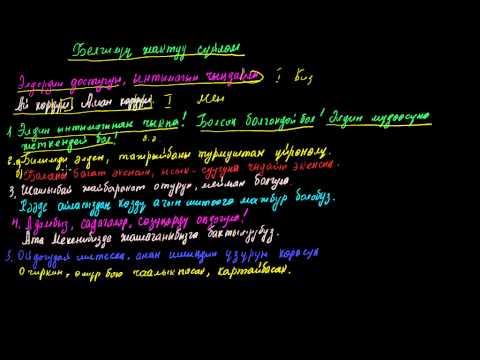 Белгилүү жактуу сүйлөм
Элдердин достугун, ынтымагын чыңдайлы I Биз
Ай көрдүм, Аман көрдүм. I мен
1. Элдин ынтымагынан чыкпа! Болсоң болгондой бол! Элдин мүдөөсүнө
жеткендей бол! 2.ж
2. а) Билимди элден, тажрыйбаны турмуштан үйрөнөлү.
б) Баланы багат экенсиң, ысык-суугуна чыдайт экенсиң.
3. Жашыбай жайбаракат отуруп, мейман болуңуз.
Кээде айласыздан көздү ачып иштөөгө мажбур болобуз.
4. Адамбыз, садагалар, сөзүңөрдү
Ата Мекенибизде жашаганыбызга бактылуубуз.
5. Ойдогудай иштесең, анан ишиңдин үзүрүн көрөсүң
Өчиркин, өмүр бою чаалыкпасаң, картайбасаң.